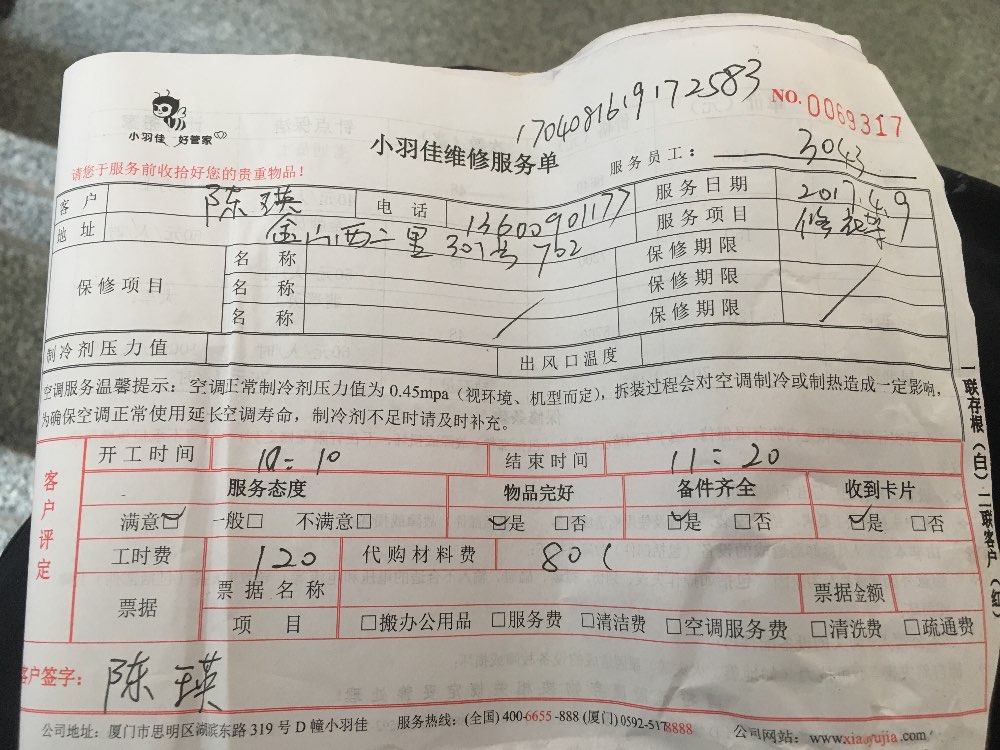 170408161917 2583
NO. 0069317
小羽佳 好管家
小羽佳维修服务单
服务员工: 3043
请您于服务前收拾好您的贵重物品!
客户 陈瑛 电话 13600901177 服务日期 2017.4.9
地址 金山西二里307号702 服务项目
保修项目 名称 保修期限
名称 保修期限
名称 保修期限
制冷剂压力值 出风口温度
空调服务温馨提示:空调正常制冷剂压力值为0.45mpa(视环境、机型而定),拆装过程会对空调制冷或制热造成一定影响,
为确保空调正常使用延长空调寿命,制冷剂不足时请及时补充。
客户评定
开工时间 10:10 结束时间 11:20
服务态度 物品完好 备件齐全 收到卡片
满意☑ 一般□ 不满意□ ☑是 □否 ☑是 □否 ☑是 □否
工时费 120 代购材料费 80
票据 票据名称 票据金额
项目 □搬办公用品 □服务费 □清洁费 □空调服务费 □清洗费 □疏通费
客户签字: 陈瑛
公司地址:厦门市思明区湖滨东路319号D幢小羽佳 服务热线:(全国)400-6655-888 (厦门)0592-5178888 公司网站:www.xiaoyujia.com
一联存根(白)二联客户(红